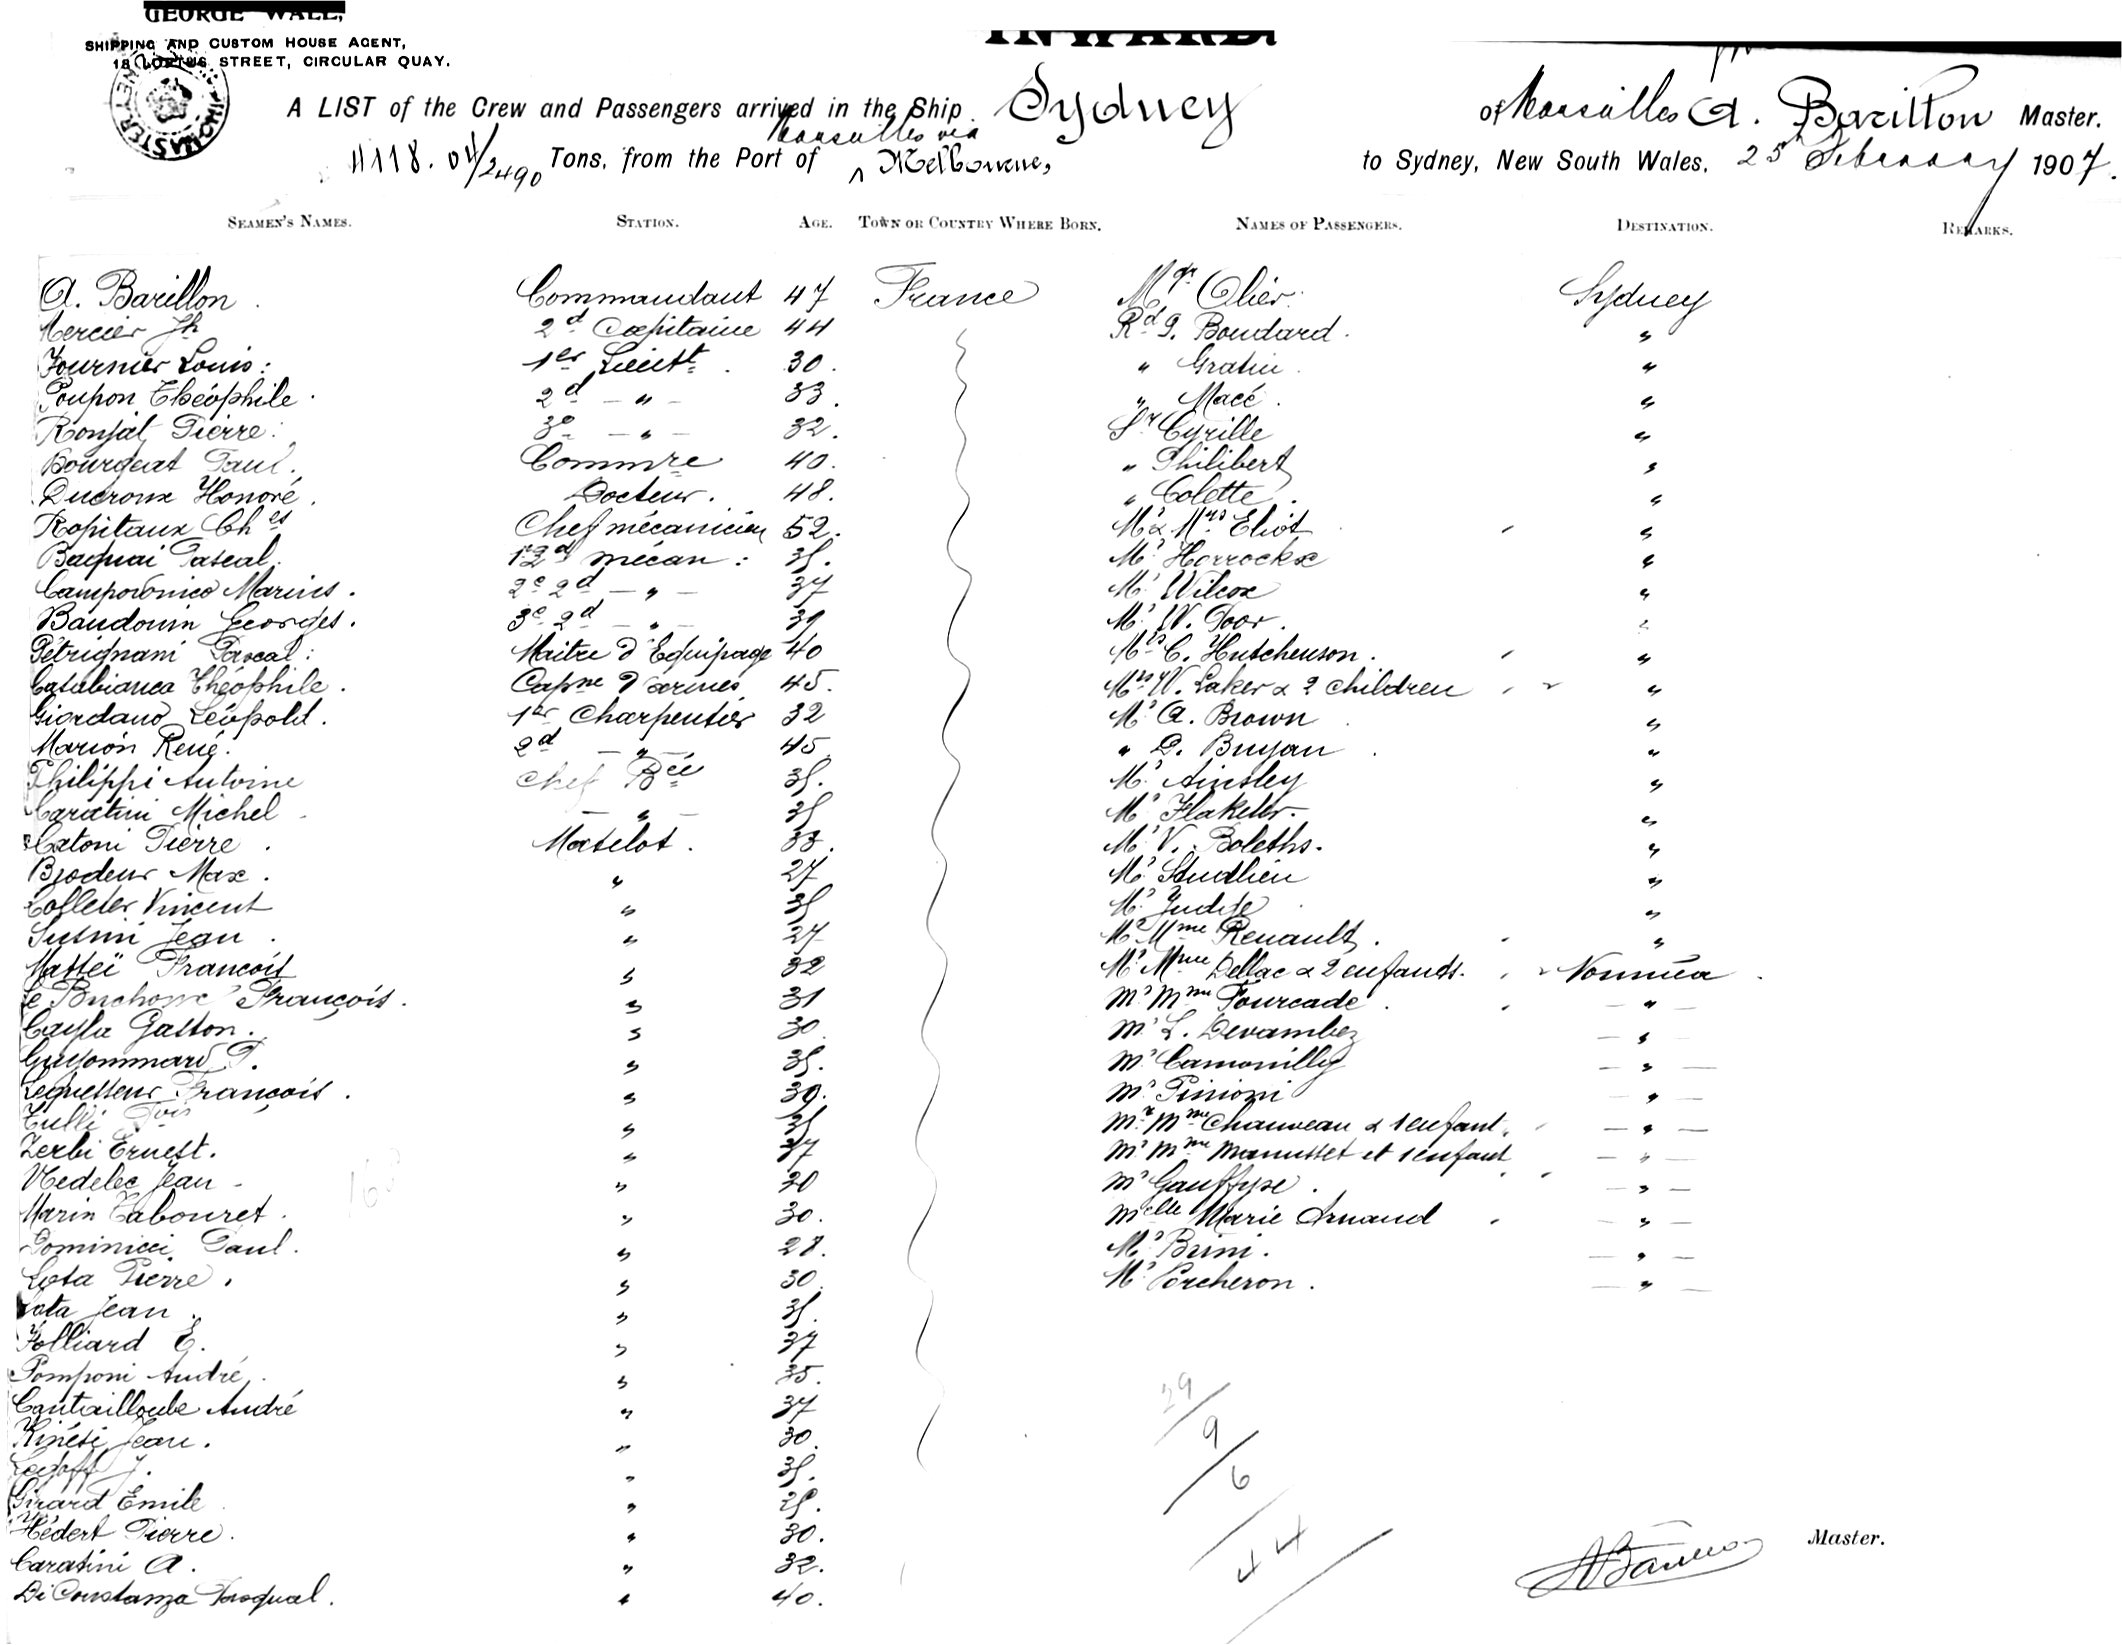 GEORGE WALL,
SHIPPING AND CUSTOM HOUSE AGENT,
18 LOFTUS STREET, CIRCULAR QUAY.
INWARD.
A LIST of the Crew and Passengers arrived in the Ship Sydney of Marseilles A. Barillon Master.
4118.04/2490 Tons, from the Port of Marseilles via Melbourne, to Sydney, New South Wales, 25 February 1907.
SEAMEN'S NAMES. STATION. AGE. TOWN OR COUNTRY WHERE BORN. NAMES OF PASSENGERS. DESTINATION. REMARKS.
A. Barillon Commandant 47 France Mgr Olier Sydney
Mercier Jh 2d Capitaine 44 Rd P. Boudard. "
Fournier Louis: 1er Lieutt. 30. " Gratin "
Poupon Théophile. 2d — " — 33. " Macé. "
Ronjat Pierre: 3e — " — 32. Sr Cyrille "
Bourgeat Paul. Commre 40. " Philibert "
Ducroux Honoré. Docteur. 48. " Colette. "
Ropitaux Ches Chef mécanicien 52. Mr & Mrs Eliot "
Baquai Pascal. 1r 2d mécan: 35. Mr Horrocks "
Camporonico Marius. 2e 2d — " — 37 Mr Wilcox "
Baudouin Georges. 3e 2d — " — 39 Mr W. Poor. "
Pétrignani Pascal: Maitre d'Equipage 40 Mrs C. Hutchenson. "
Casabianca Théophile. Capne d'armes 45. Mrs W. Laker & 2 children "
Giordano Léopold. 1er Charpentier 32 Mr A. Brown "
Marion René. 2d — " — 45 " D. Bryan. "
Philippi Antoine Chef Bée 35. Mr Ainsley "
Caratini Michel — " — 35 Mr Flakeler. "
Catoni Pierre. Matelot. 33. Mr V. Boleths. "
Brodeur Max. " 27 Mr "
Colleter Vincent " 35 Mr Judge "
Susini Jean. " 27 Mr Mme Renault. "
Matteï François " 32 Mr Mme Dellac & 2 enfants. Nouméa.
Le François. " 31 Mr Mme Fourcade. — " —
Cayla Gaston. " 30 Mr L. Devambez — " —
Guyommard P. " 35. Mr Camouilly — " —
Lequesseur François. " 39. Mr Pinioni — " —
Tulli Fois " 35 Mr Mme Chauveau & 1 enfant. — " —
Zerbi Ernest. " 37 Mr Mme Manusset et 1 enfant — " —
Nedelec Jean " 30 Mr Gauffype. — " —
Marin Tabouret. " 30. Melle Marie Arnaud — " —
Dominici Paul. " 28. Mr Brini. — " —
Lota Pierre. " 30. Mr Porcheron. — " —
Lota Jean. " 35.
Folliard E. " 37
Pomponi André. " 35.
Cantailloube André " 37
Kinési Jean. " 30.
Legoff J. " 35.
Girard Emile " 25.
Hédert Pierre. " 30.
Caratini A. " 32.
Di Constanza Pasqual. " 40.
29/
9/
6
44
ABarillon Master.